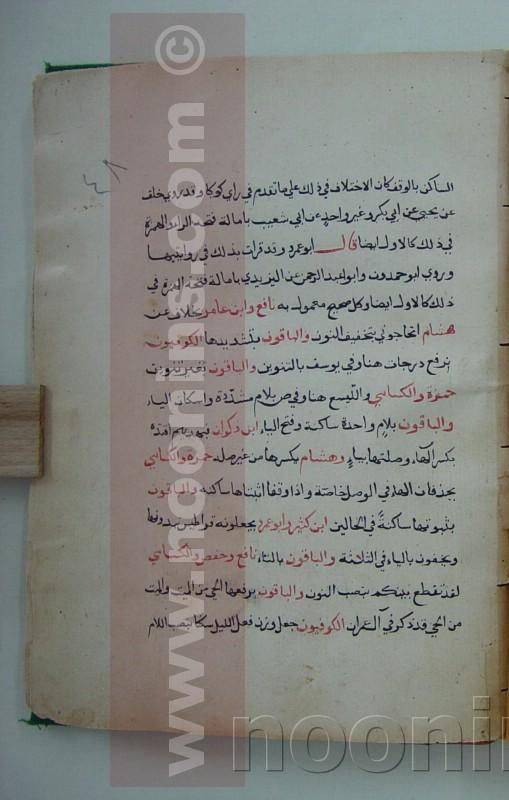 ٤٨
الساكن بالوقف كان الاختلاف في ذلك على ما تقدم في راى كوكبا وقد روى خلف
عن يحيى عن ابي بكر وغير واحد عن ابي شعيب بامالة فتحة الراء والهمزة
في ذلك كالاول ايضا قال ابو عمرو وقد قرات بذلك في روايتهما
وروي ابو حمدون وابو عبد الرحمن عن اليزيدي بامالة فتحة الهمزة في
ذلك كالاول ايضا وكل صحيح معمول به نافع وابن عامر بخلاف عن
هشام اتحاجوني بتخفيف النون والباقون بتشديدها الكوفيون
نرفع درجات هنا وفي يوسف بالتنوين والباقون بغير تنوين
حمزة والكسائي واللّيسع هنا وفي ص بلام مشدّدة واسكان الياء
والباقون بلام واحدة ساكنة وفتح الياء ابن ذكوان فبهديهم اقتده
بكسر الهاء وصلتها بياء وهشام بكسرها من غير صلة حمزة والكسائي
بحذفان الهاء في الوصل خاصّة واذا وقفا اثبتاها ساكنه والباقون
يثبتونها ساكنةً في الحالين ابن كثير وابو عمرو يجعلونه قراطيس يبدونها
ويخفون بالياء في الثلاثة والباقون بالتاء نافع وحفص والكسائي
لقد تقطع بينكم بنصب النون والباقون برفعها الحي من الميت والميت
من الحي قد ذكر في آل عمران الكوفيون جعل وزن فعل الليل سكنا بنصب اللام
www.noorins.com ©
noorin